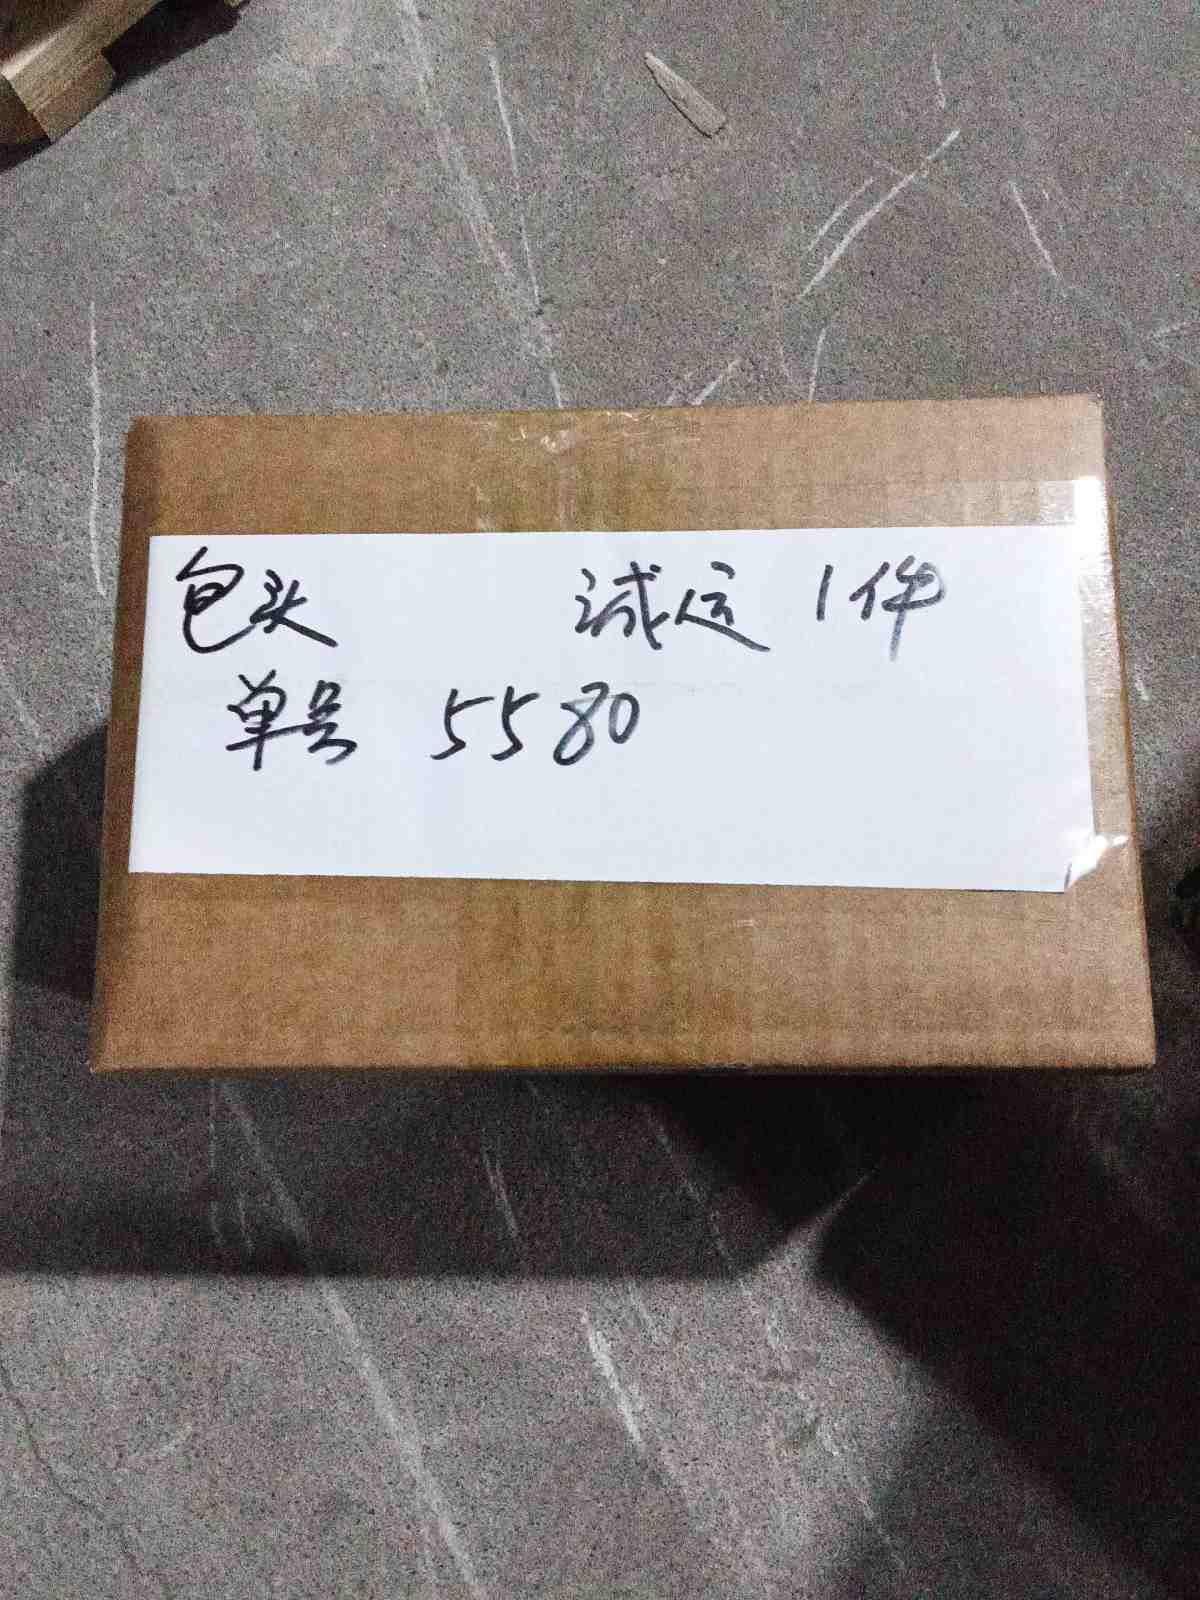 包头 诚运 1件
单号 5580